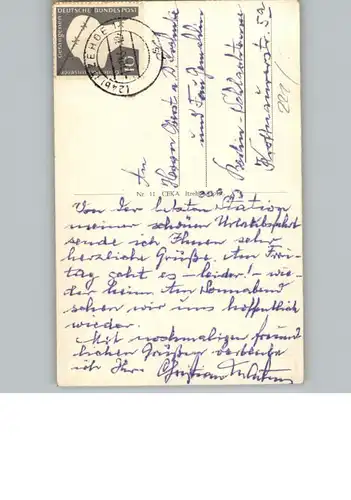 Gefangenen
DEUTSCHE BUNDESPOST
10
(24b) ITZEHOE
An
Herrn
und Frau Gemahlin
Berlin-Schlachtensee
5a
Nr. 11 CEKA
Von der letzten Station
meiner schönen Urlaubsfahrt
sende ich Ihnen sehr
herzliche Grüße. Am Frei-
tag geht es - leider! - wie-
der heim. Am Sonnabend
sehen wir uns hoffentlich
wieder.
Mit nochmaligen freund-
lichen Grüßen verbleibe
ich Ihr Christian